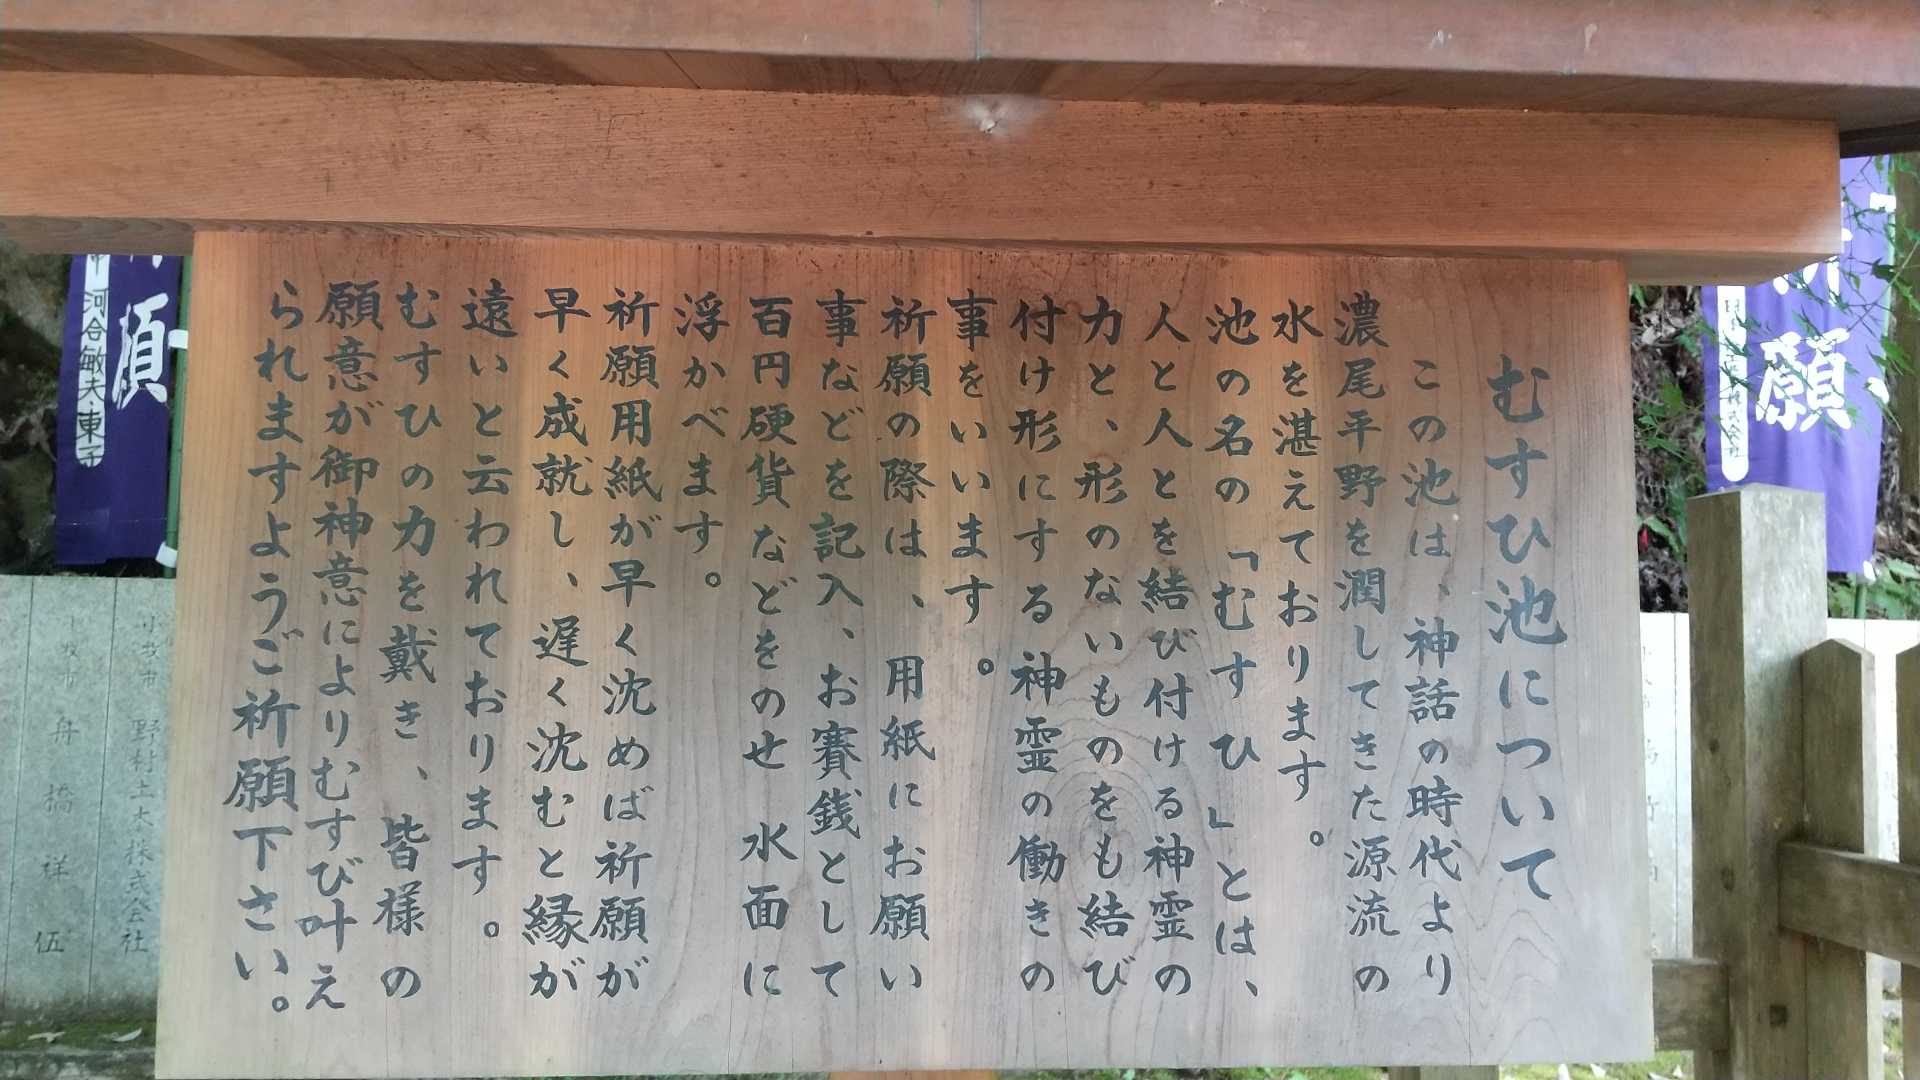 むすひ池について
この池は、神話の時代より
濃尾平野を潤してきた源流の
水を湛えております。
池の名の「むすひ」とは、
人と人とを結び付ける神霊の
力と、形のないものをも結び
付け形にする神霊の働きの
事をいいます。
祈願の際は、用紙にお願い
事などを記入、お賽銭として
百円硬貨などをのせ水面に
浮かべます。
祈願用紙が早く沈めば祈願が
早く成就し、遅く沈むと縁が
遠いと云われております。
むすひの力を戴き、皆様の
願意が御神意によりむすび叶え
られますようご祈願下さい。
願
願
河合敏夫・東
野村土木株式会社
舟橋祥伍